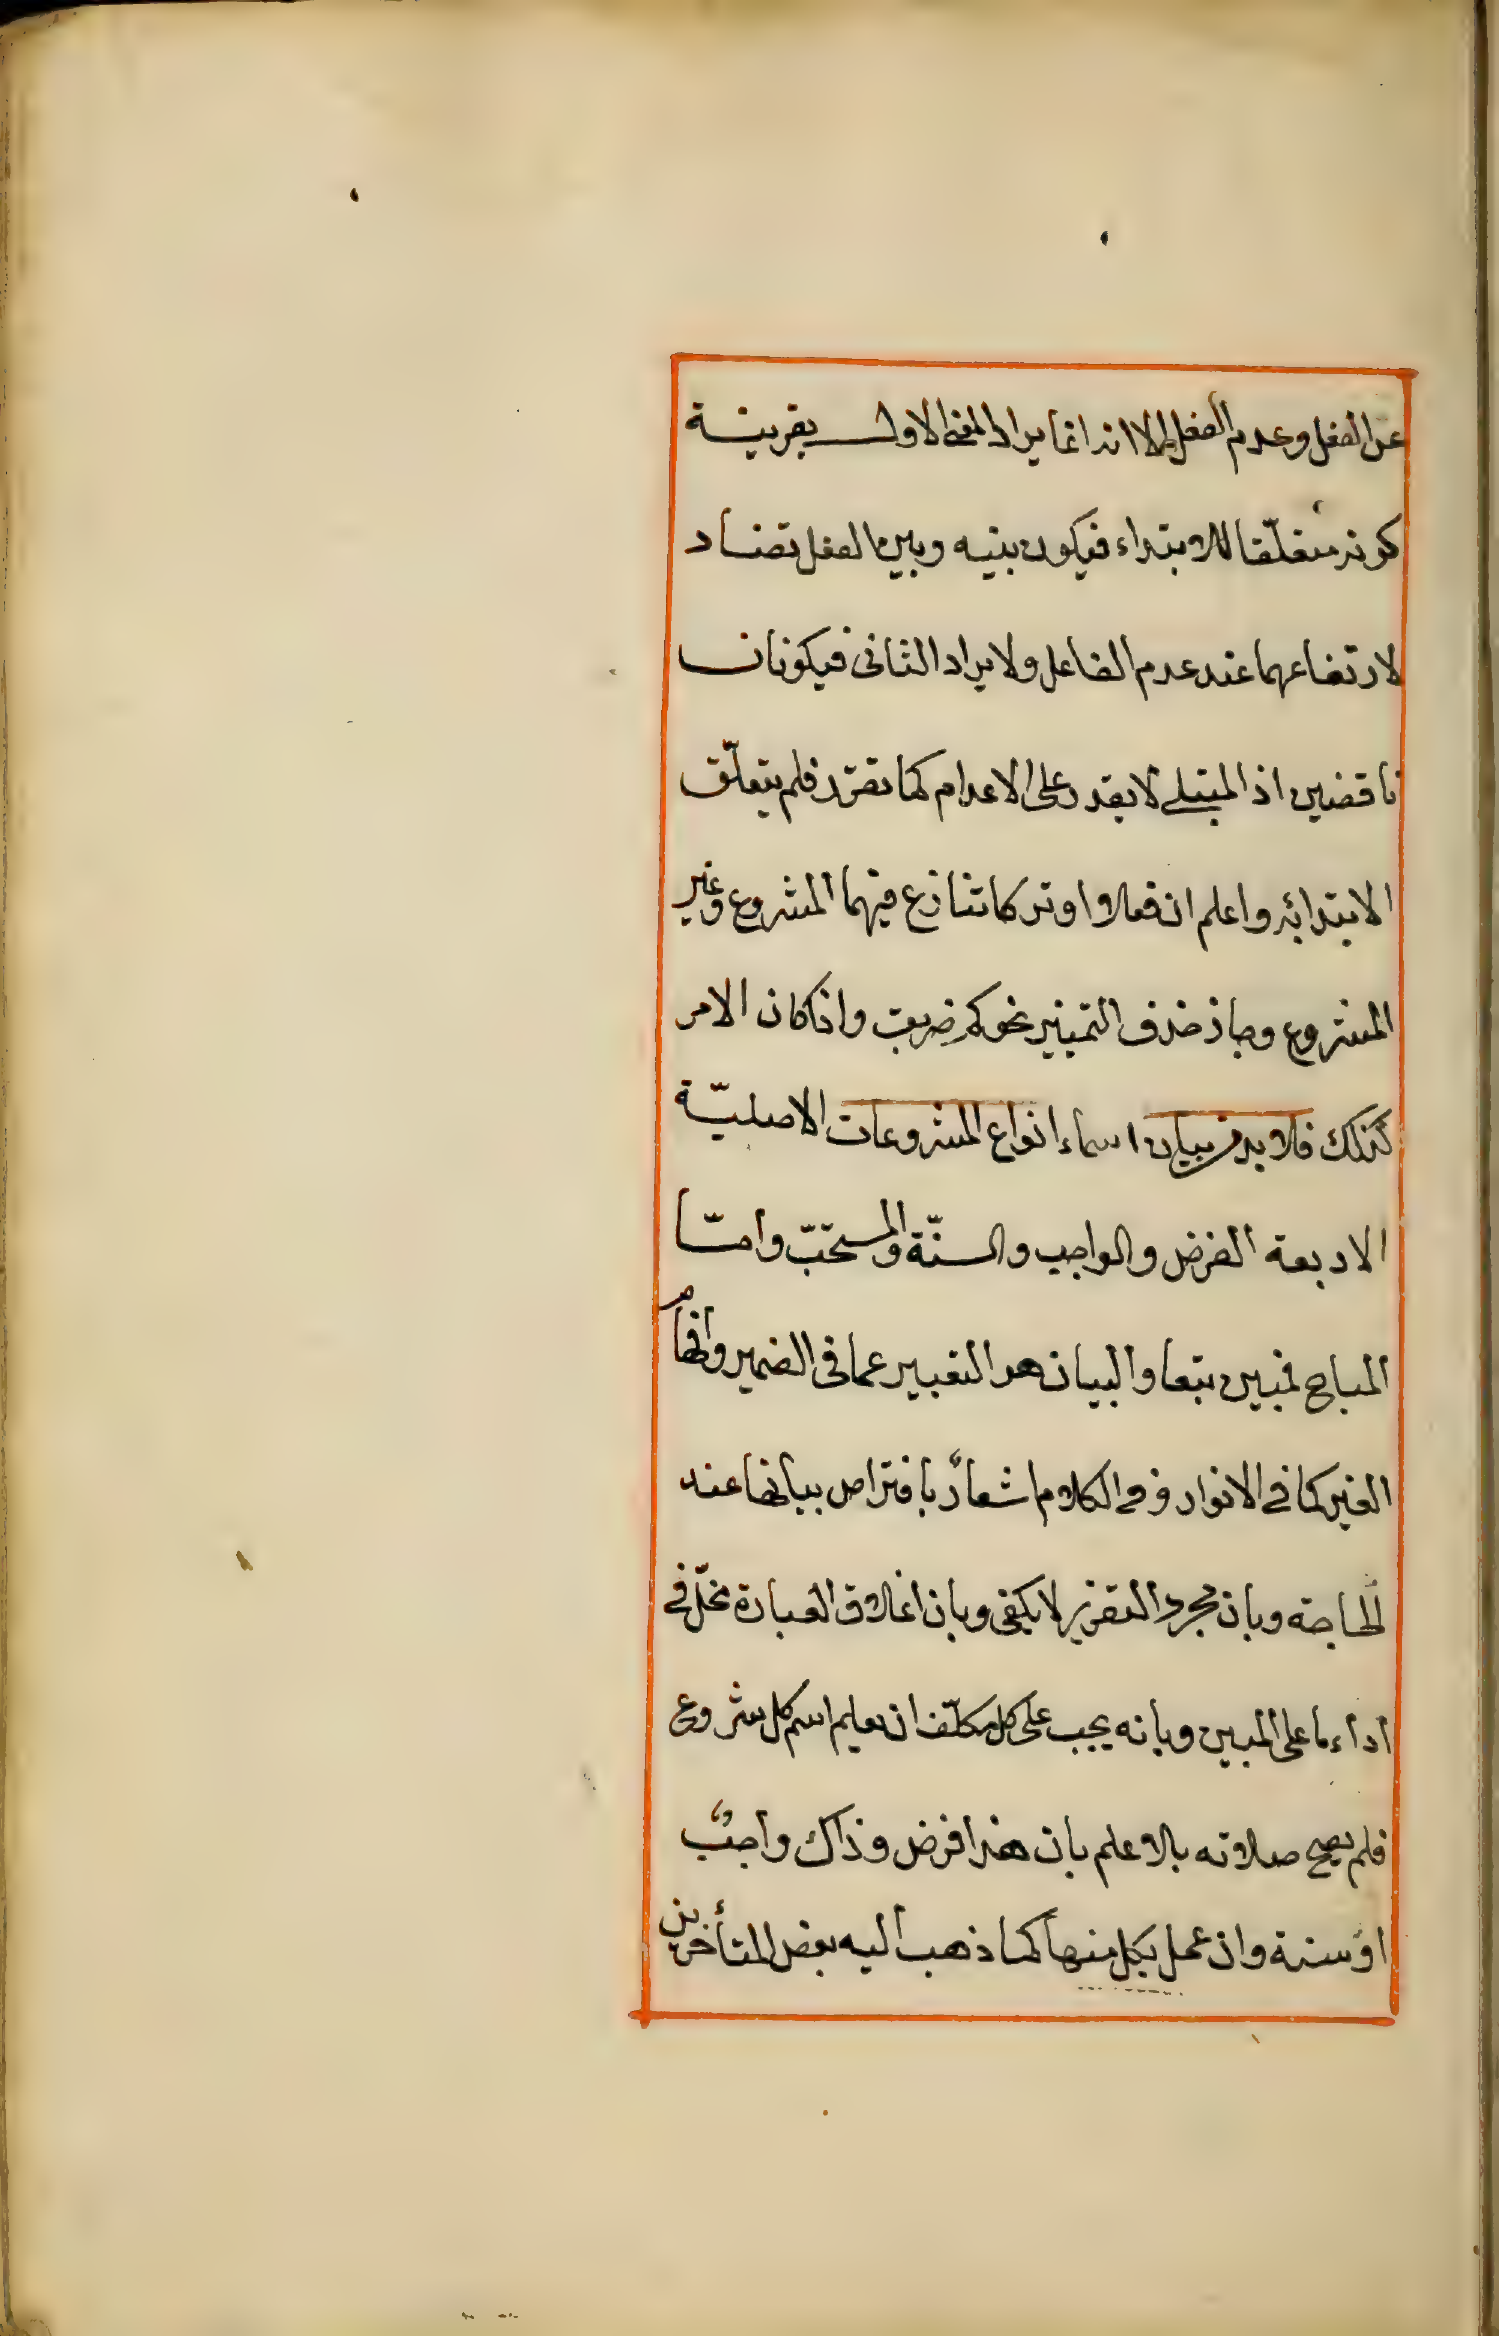 عن الفعل وعدم الفعل الا انه انما يراد المعنى الاول بقرينة
كونه متعلّقا للابتداء فيكون بينه وبين الفعل تضاد
لارتفاعهما عند عدم الفاعل ولا يراد الثانى فيكونان
ناقضين اذ المبتلى لا يقدر على الاعدام كما تقرّر فلم يتعلّق
الابتدا به واعلم ان فعلا او تركا تنازع فيهما المشروع وغير
المشروع وجاز حذف التمييز نحو كم ضربت واذا كان الامر
كذلك فلا بد من بيان اسماء انواع المشروعات الاصليّة
الاربعة الفرض والواجب والسنّة والمستحبّ وامّا
المباح فمبين تبعا والبيان هو التعبير عما فى الضمير وافهام
الغير كما فى الانوار وفى الكلام اشعارٌ بافتراض بيانها عند
الحاجة وبان مجرد التقرير لا يكفى وبان اغلاق العبارة مخلّ فى
اداء ما على المبين وبانه يجب على كل مكلّف ان يعلم اسم كل مشروع
فلم يصح صلاته بلا علم بان هذا فرض وذاك واجبٌ
او سنة وان عمل بكل منها كما ذهب اليه بعض المتأخرين